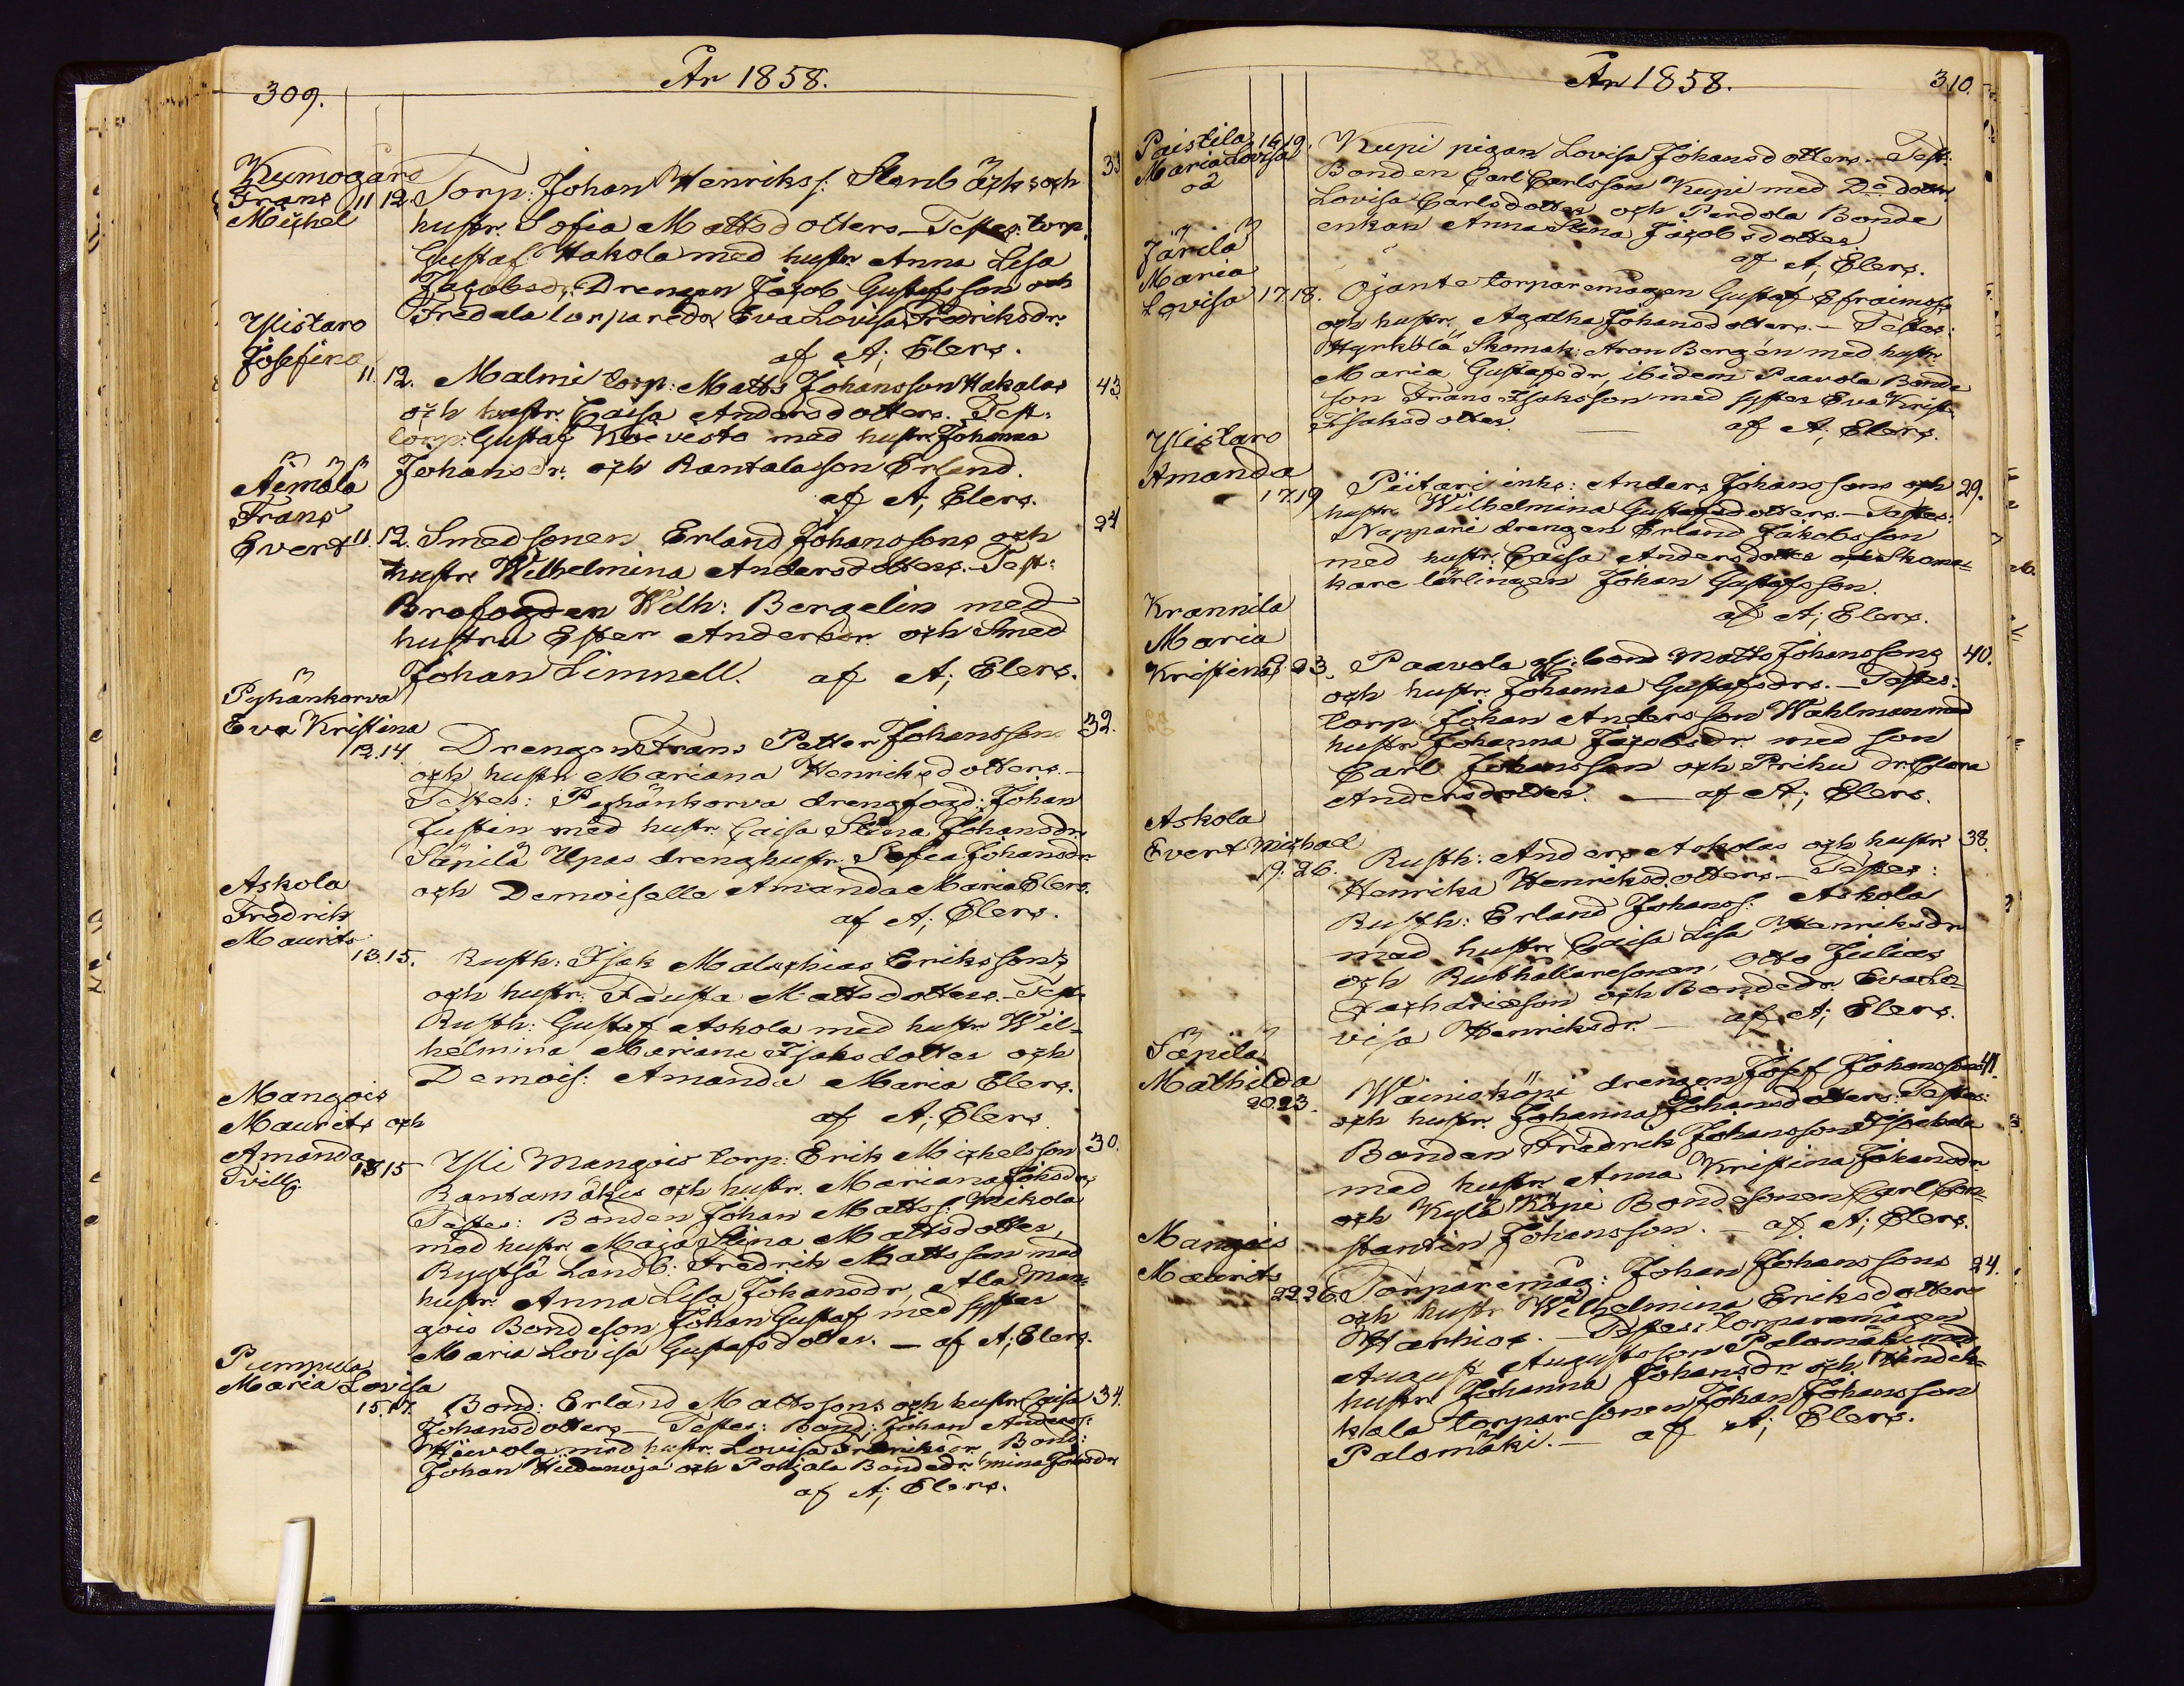 309.
År 1858.
Kumogård
Frans
Michel
11 12. Torp: Johan Henrikss: Stenbäcks och 33
hustr. Sofia Mattsdotters – Testes: torp.
Gustaf Hakola med hustr. Anna Lisa
Jacobsdr, Drengen Jacob Gustafsson och
Fredala torparedr Eva Lovisa Fredriksdr.
af A; Elers.
Ylistaro
Josefina
11. 12. Malmi torp: Matts Johansson Hakalas 43
och hustr. Caisa Andersdotters. Test:
torp: Gustaf Koivisto med hustr. Johanna
Johansdr. och Rantalasson Erland.
af A; Elers.
Äimälä
Frans
Evert
11. 12. Smedsonen Erland Johanssons och 24
hustrs Wilhelmina Andersdotters. – Test:
Brofogden Wilh: Bergelin med
hustru Ester Andersdr. och Smed
Johan Limnell. af A; Elers.
Pyhänkorva
Eva Kristina
12. 14. Drengen Frans Petter Johanssons 32.
och hustr. Mariana Henriksdotters. –
Testes: Pyhänkorva drengfogd: Johan
Justin med hustr. Caisa Stina Johansdr.
Säpilä Upas drenghustr. Sofia Johansdr.
och Demoiselle Amanda Maria Elers.
af A; Elers.
Askola
Fredrik
Maurits
13. 15. Rusth: Isak Malachias Erikssons
och hustr. Fausta Mattsdotters. – Test:
Rusth: Gustaf Askola med hustr. Wil-
helmina Mariana Isaksdotter och
Demois: Amanda Maria Elers.
af A; Elers.
Mangois
Maurits och
Amanda
Tvill.
13 15 Yli Mangois torp: Erik Michelsson 30.
Rantamäkis och hustr. Mariana Johsdrs
Testes: Bonden Johan Matts: Mikola
med hustr. Maja Stina Mattsdotter,
Ryytsä Landb: Fredrik Mattsson med
hustr. Anna Lisa Johansdr, Ala Man-
gois Bondeson Johan Gustaf med syster
Maria Lovisa Gustafsdotter. – af A; Elers.
Pumpula
Maria Lovisa
15. 17. Bond: Erland Mattssons och hustr. Caisa 34.
Johansdotters – Testes: Bond: Johan Anderss:
med hustr. Lovisa Fredriksdr. Bond:
Johan Hiidenoja och Pohjala Bondedr. Mina Johsdr
af A; Elers.
År 1858.
310.
Paistila
Maria Lovisa
oä
16 19. Kupi pigan Lovisa Johansdotters. – Test:
Bonden Carl Carlsson Kupi med Do dotter
Lovisa Carlsdotter och Perdola Bonde
enkan Anna Stina Jacobsdotter.
af A; Elers.
Järilä
Maria
Lovisa
17 18. Ojante torparemågen Gustaf Efraimss:
och hustr. Agatha Johansdotters. – Testes:
Hyrkölä Skomak: Aron Bergén med hustr.
Maria Gustafsdr, ibidem Paavola Bonde
son Frans Isaksson med syster Eva Krist.
Isaksdotter. – af A; Elers.
Ylistaro
Amanda
17. 19 Piitari inhs: Anders Johanssons och 29.
hustr. Wilhelmina Gustafsdotters. – Testes:
Nappari drengen Erland Jakobsson
med hustr: Caisa Andersdotter och Skoma-
kare lärlingen Johan Gustafsson.
af A; Elers.
Krannila
Maria
Kristina
23. Paavola bond: Matts Johanssons 40.
och hustr. Johanna Gustafsdrs. – Testes:
torp: Johan Andersson Wahlman med
hustr. Johanna Jacobsdr. med son
Carl Johansson och Prihu dr. Clara
Andersdotter. – af A; Elers.
Askola
Evert Michael
19. 26. Rusth: Anders Askolas och hustr. 38.
Henrika Henriksdotters – Testes:
Rusth: Erland Johanss: Askola
med hustr. Caisa Lisa Henriksdr.
och Rusthållaresonen, Otto Julias
Zachariesson och Bondedr. Eva Lo-
visa Henriksdr. – af A; Elers.
Säpilä
Mathilda
20. 23. Wainisköpi drengen Josef Johanssons 41.
och hustr. Johanna Johansdotters: Testes:
Bonden Fredrik Johansson
med hustr. Anna Kristina Johansdr.
och Kylä Köpi Bondesonen Carl Con-
stantin Johansson. – af A; Elers.
Mangois
Maurits
22 26. Torparemåg: Johan Johanssons 24.
och hustr. Wilhelmina Eriksdotters
Harhios. – Testes: torparemågen
August Augustsson Palomäki med
hustr. Johanna Johansdr. och Hendik-
kala torparesonen Johan Johansson
Palomäki. – af A; Elers.